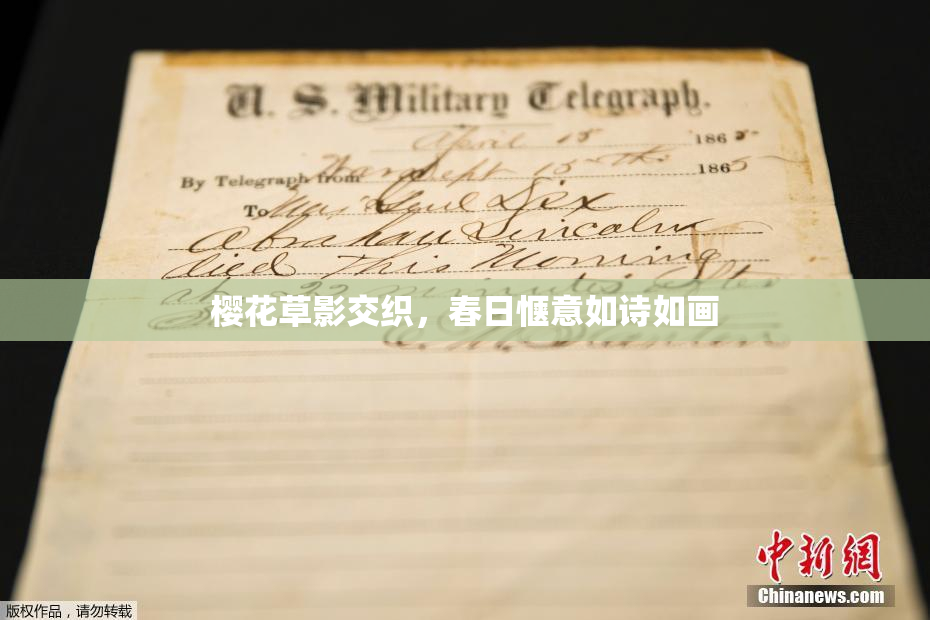 U. S. Military Telegraph.
April 15 1865
By Telegraph from War Dept 15th 1865
To Maj Genl Dix
Abraham Lincoln
died This Morning
at 22 minutes after
樱花草影交织，春日惬意如诗如画
E. M. Stanton
中新网
Chinanews.com
版权作品，请勿转载